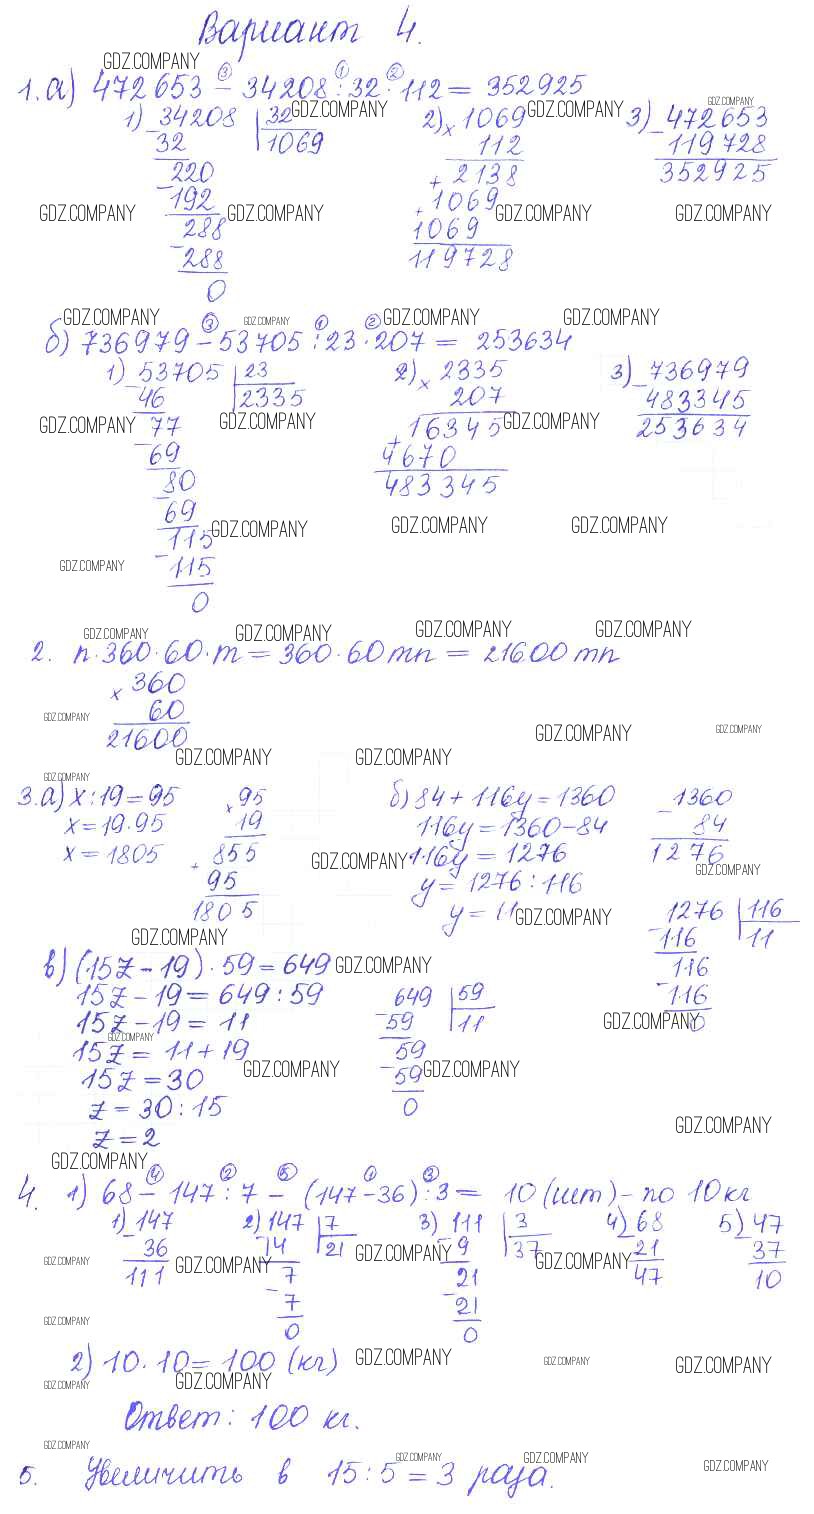 Вариант 4.
1. а) 472653 − 34208 : 32 · 112 = 352925
③ ① ②
1) 34208 32
32 1069
220
192
288
288
0
2) 1069
× 112
2138
+ 1069
+ 1069
119728
3) 472653
− 119728
352925
б) 736979 − 53705 : 23 · 207 = 253634
③ ① ②
1) 53705 23
46 2335
77
69
80
69
115
115
0
2) 2335
× 207
16345
+ 4670
483345
3) 736979
− 483345
253634
2. n · 360 · 60 · m = 360 · 60 mn = 21600 mn
× 360
60
21600
3. а) x : 19 = 95
x = 19 · 95
x = 1805
× 95
19
855
+ 95
1805
б) 84 + 116y = 1360
116y = 1360 − 84
116y = 1276
y = 1276 : 116
y = 11
− 1360
84
1276
1276 116
116 11
116
116
0
в) (15z − 19) · 59 = 649
15z − 19 = 649 : 59
15z − 19 = 11
15z = 11 + 19
15z = 30
z = 30 : 15
z = 2
649 59
59 11
59
59
0
4. 1) 68 − 147 : 7 − (147 − 36) : 3 = 10 (шт) - по 10 кг
④ ② ⑤ ① ③
1) 147
− 36
111
2) 147 7
14 21
7
7
0
3) 111 3
9 37
21
21
0
4) 68
− 21
47
5) 47
− 37
10
2) 10 · 10 = 100 (кг)
Ответ: 100 кг.
5. Увеличить в 15 : 5 = 3 раза.
GDZ.COMPANY